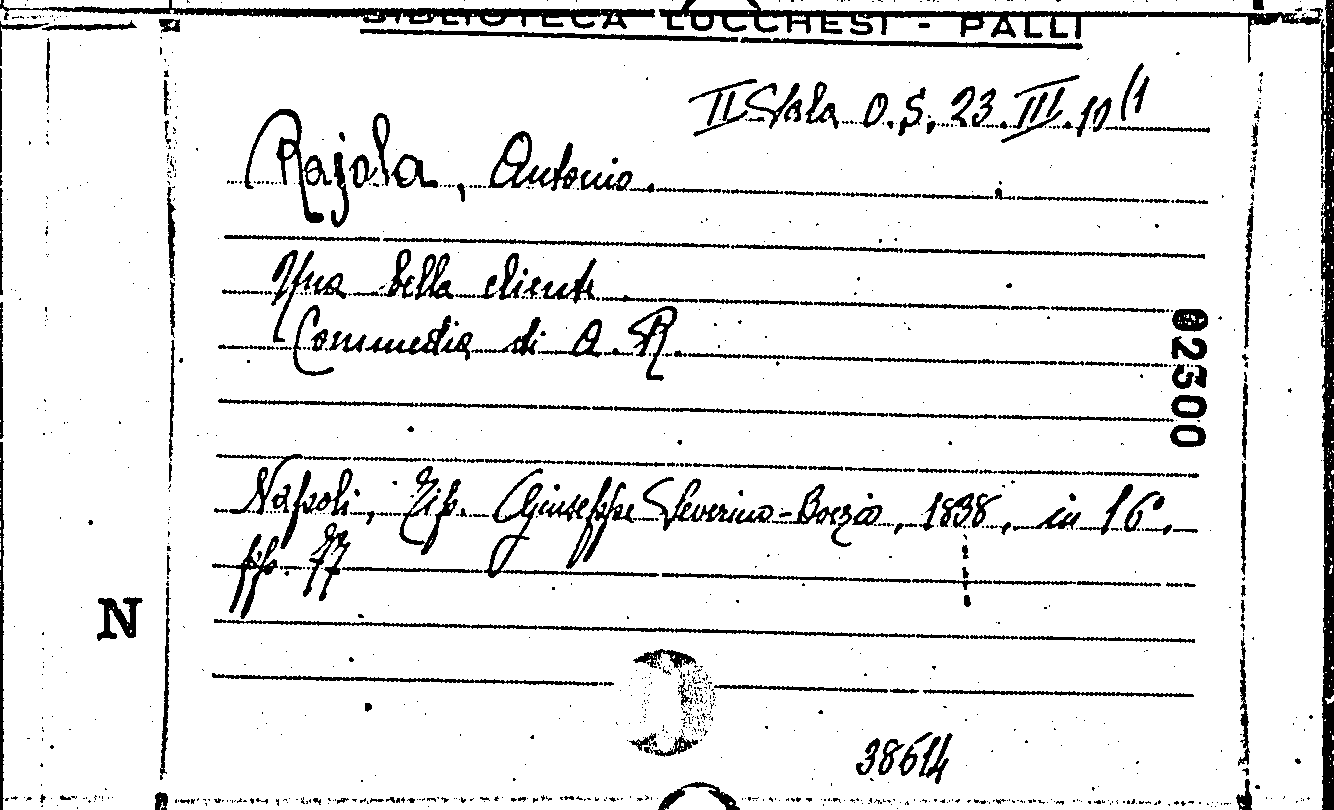 BIBLIOTECA LUCCHESI - PALLI
II Sala O.S. 23.III.10(1
Rajola, Antonio.
Una bella cliente
Commedia di A.R.
02500
Napoli, Tip. Giuseppe Severino-Boezio, 1838, in 16°.
pp. 77
N
38614